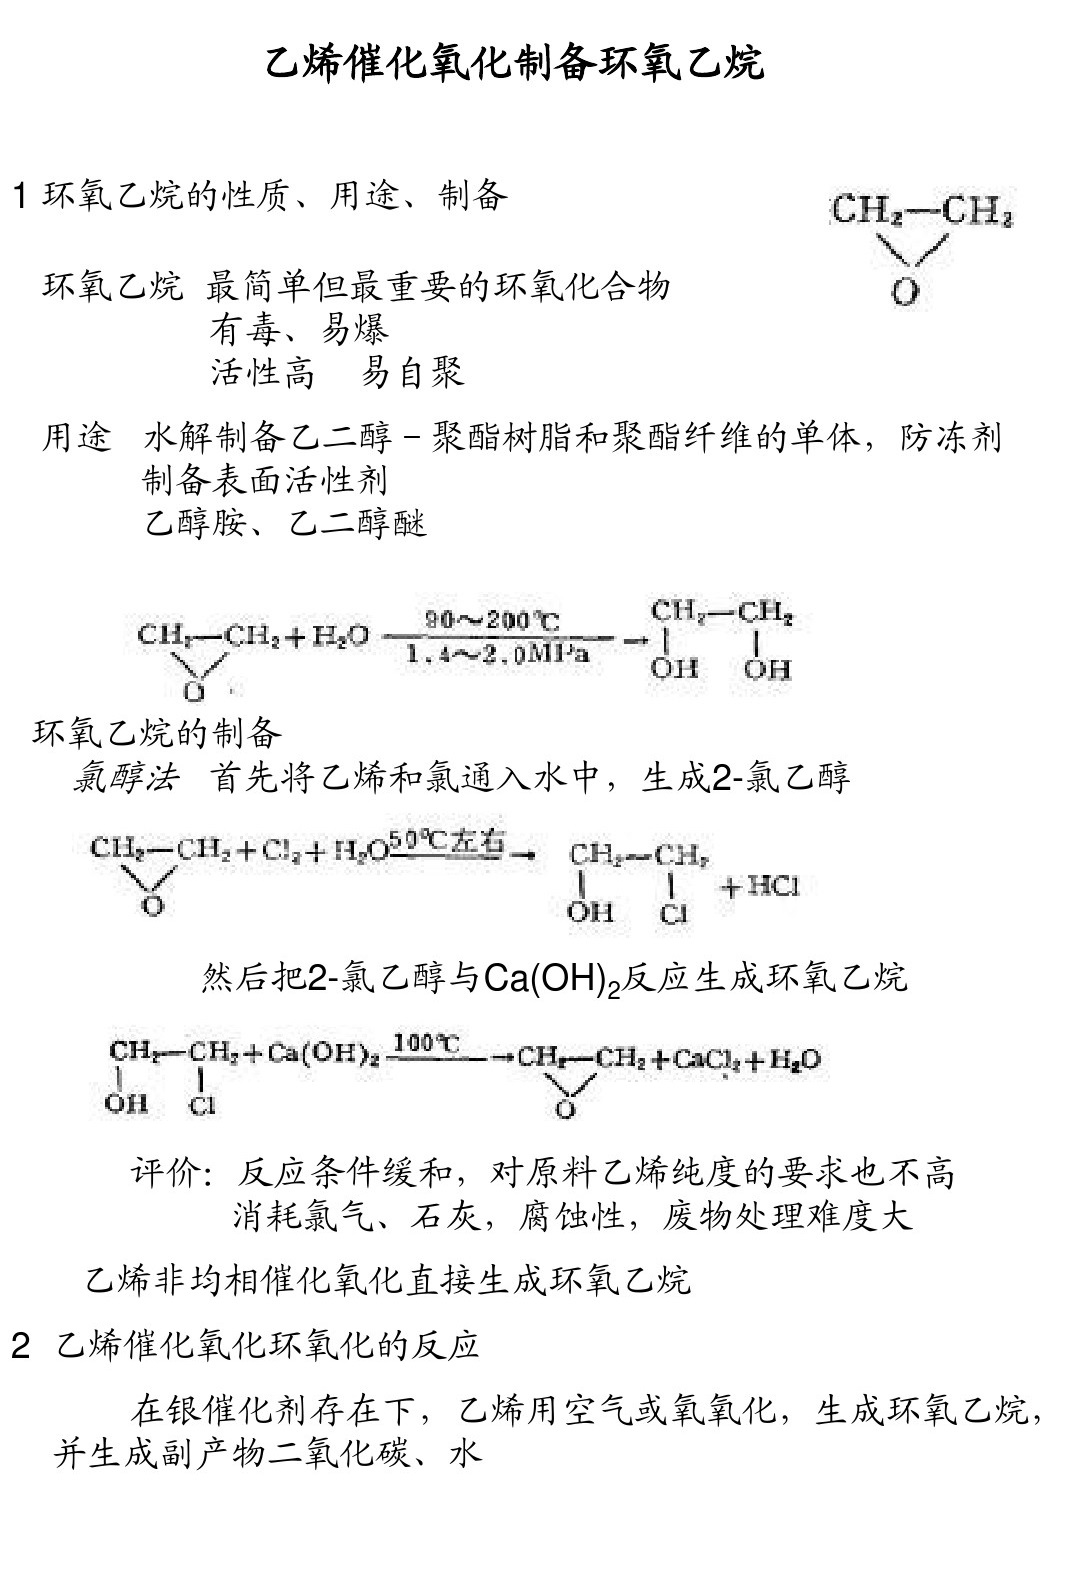 乙烯催化氧化制备环氧乙烷
1 环氧乙烷的性质、用途、制备
CH₂—CH₂
O
环氧乙烷 最简单但最重要的环氧化合物
有毒、易爆
活性高 易自聚
用途 水解制备乙二醇－聚酯树脂和聚酯纤维的单体，防冻剂
制备表面活性剂
乙醇胺、乙二醇醚
90～200℃
CH₂—CH₂+H₂O → CH₂—CH₂
1.4～2.0MPa
O OH OH
环氧乙烷的制备
氯醇法 首先将乙烯和氯通入水中，生成2-氯乙醇
CH₂—CH₂+Cl₂+H₂O 50℃左右 → CH₂—CH₂ +HCl
O OH Cl
然后把2-氯乙醇与Ca(OH)₂反应生成环氧乙烷
CH₂—CH₂+Ca(OH)₂ 100℃ →CH₂—CH₂+CaCl₂+H₂O
OH Cl O
评价：反应条件缓和，对原料乙烯纯度的要求也不高
消耗氯气、石灰，腐蚀性，废物处理难度大
乙烯非均相催化氧化直接生成环氧乙烷
2 乙烯催化氧化环氧化的反应
在银催化剂存在下，乙烯用空气或氧氧化，生成环氧乙烷，
并生成副产物二氧化碳、水